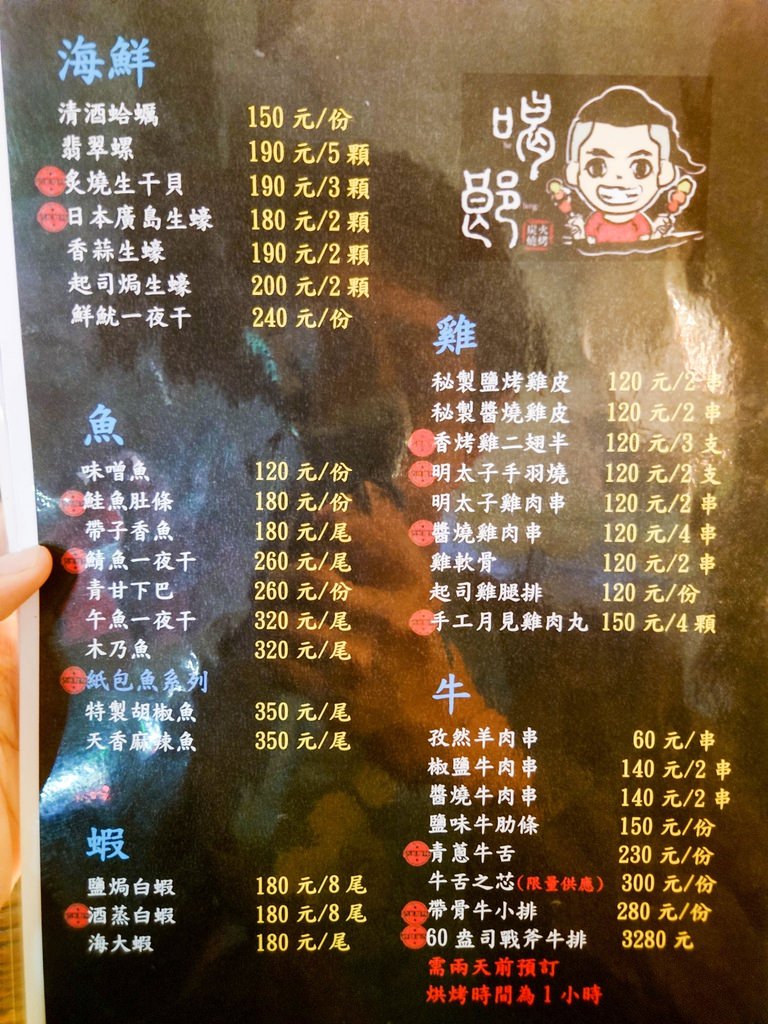 海鮮
清酒蛤蠣 150 元/份
翡翠螺 190 元/5 顆
炙燒生干貝 190 元/3 顆
日本廣島生蠔 180 元/2 顆
香蒜生蠔 190 元/2 顆
起司焗生蠔 200 元/2 顆
鮮魷一夜干 240 元/份
魚
味噌魚 120 元/份
鮭魚肚條 180 元/份
帶子香魚 180 元/尾
鯖魚一夜干 260 元/尾
青甘下巴 260 元/份
午魚一夜干 320 元/尾
木乃魚 320 元/尾
紙包魚系列
特製胡椒魚 350 元/尾
天香麻辣魚 350 元/尾
蝦
鹽焗白蝦 180 元/8 尾
酒蒸白蝦 180 元/8 尾
海大蝦 180 元/尾
喝
郎
炭火
燒烤
雞
秘製鹽烤雞皮 120 元/2 串
秘製醬燒雞皮 120 元/2 串
香烤雞二翅半 120 元/3 支
明太子手羽燒 120 元/2 支
明太子雞肉串 120 元/2 串
醬燒雞肉串 120 元/4 串
雞軟骨 120 元/2 串
起司雞腿排 120 元/份
手工月見雞肉丸 150 元/4 顆
牛
孜然羊肉串 60 元/串
椒鹽牛肉串 140 元/2 串
醬燒牛肉串 140 元/2 串
鹽味牛肋條 150 元/份
青蔥牛舌 230 元/份
牛舌之芯(限量供應) 300 元/份
帶骨牛小排 280 元/份
60 盎司戰斧牛排 3280 元
需兩天前預訂
烘烤時間為 1 小時